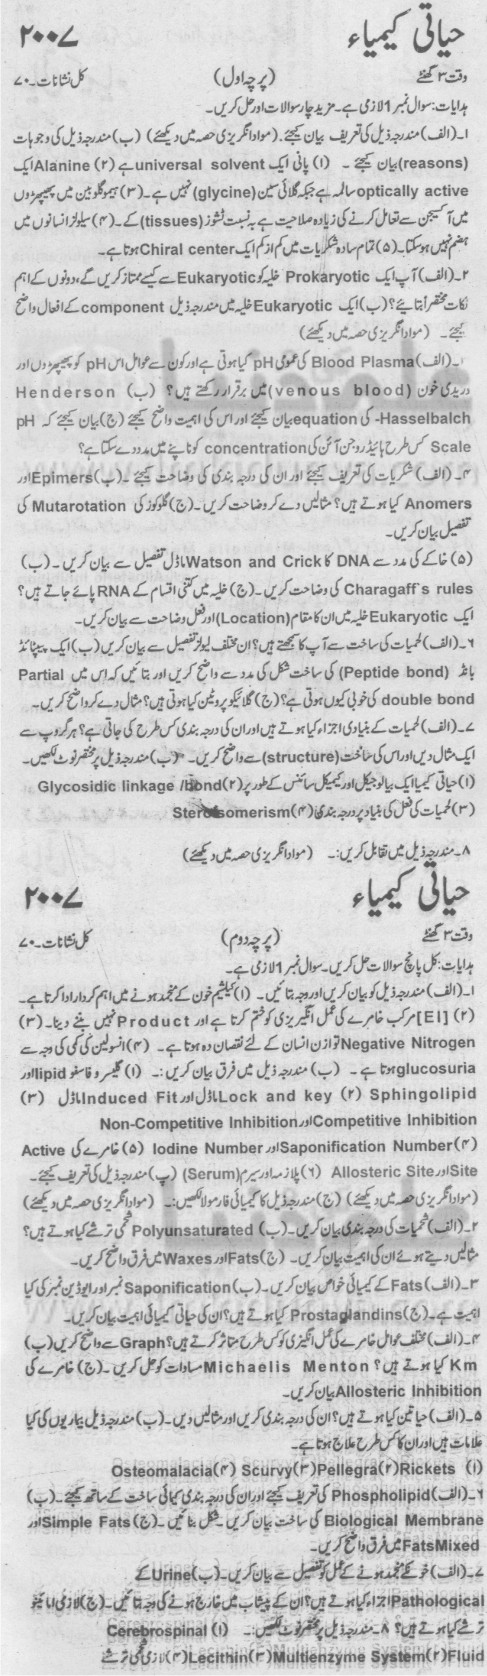 حیاتی کیمیاء ۲۰۰۷
وقت ۳ گھنٹے (پرچہ اول) کل نشانات۔۷۰
ہدایات: سوال نمبر 1 لازمی ہے۔ مزید چار سوالات اور حل کریں۔
۱۔(الف) مندرجہ ذیل کی تعریف بیان کیجئے۔ (مواد انگریزی حصہ میں دیکھئے) (ب) مندرجہ ذیل کی وجوہات
(reasons) بیان کیجئے ۔ (۱) پانی ایک universal solvent ہے (۲) Alanine ایک
optically active سالمہ ہے جبکہ گلائی سین (glycine) نہیں ہے۔ (۳) ہیموگلوبین میں پھیپھڑوں
میں آکسیجن سے تعامل کرنے کی زیادہ صلاحیت ہے بہ نسبت ٹشوز (tissues) کے۔ (۴) سیلولز انسانوں میں
ہضم نہیں ہو سکتا۔ (۵) تمام سادہ شکریات میں کم از کم ایک Chiral center ہوتا ہے۔
۲۔(الف) آپ ایک Prokaryotic خلیہ کو Eukaryotic سے کیسے ممتاز کریں گے، دونوں کے اہم
نکات مختصراً بتائیے؟ (ب) ایک Eukaryotic خلیہ میں مندرجہ ذیل component کے افعال واضح
کیجئے۔ (مواد انگریزی حصہ میں دیکھئے)
۔(الف) Blood Plasma کی عمومی pH کیا ہوتی ہے اور کون سے عوامل اس pH کو پھیپھڑوں اور
وریدی خون (venous blood) میں برقرار رکھتے ہیں؟ (ب) Henderson
-Hasselbalch کی equation بیان کیجئے اور اس کی اہمیت واضح کیجئے (ج) بیان کیجئے کہ pH
Scale کس طرح ہائیڈروجن آئن کی concentration کو ناپنے میں مدد دے سکتا ہے؟
۴۔ (الف) شکریات کی تعریف کیجئے اور ان کی درجہ بندی کی وضاحت کیجئے۔ (ب) Epimers اور
Anomers کیا ہوتے ہیں؟ مثالیں دے کر وضاحت کریں۔ (ج) گلوکوز کی Mutarotation کی
تفصیل بیان کریں۔
(۵) خاکے کی مدد سے DNA کا Watson and Crick ماڈل تفصیل سے بیان کریں۔ (ب)
Charagaff's rules کی وضاحت کریں۔ (ج) خلیہ میں کتنی اقسام کے RNA پائے جاتے ہیں؟
ایک Eukaryotic خلیہ میں ان کا مقام (Location) اور فعل وضاحت سے بیان کریں۔
۶۔(الف) لحمیات کی ساخت سے آپ کیا سمجھتے ہیں؟ ان مختلف لیولز تفصیل سے بیان کریں (ب) ایک پیپٹائڈ
بانڈ (Peptide bond) کی ساخت شکل کی مدد سے واضح کریں اور بتائیں کہ اس میں Partial
double bond کی خوبی کیوں ہوتی ہے؟ (ج) گلائیکو پروٹین کیا ہوتی ہیں؟ مثال دے کر واضح کریں۔
۷۔(الف) لحمیات کے بنیادی اجزاء کیا ہوتے ہیں اور ان کی درجہ بندی کس طرح کی جاتی ہے؟ ہر گروپ سے
ایک مثال دیں اور اس کی ساخت (structure) سے واضح کریں۔ (ب) مندرجہ ذیل پر مختصر نوٹ لکھیں۔
(۱) حیاتی کیمیا ایک بیالوجیکل اور کیمیکل سائنس کے طور پر (۲) Glycosidic linkage /bond
(۳) لحمیات کی فعل کی بنیاد پر درجہ بندی (۴) Stereoisomerism
۸۔ مندرجہ ذیل میں تقابل کریں:۔ (مواد انگریزی حصہ میں دیکھئے)
حیاتی کیمیاء ۲۰۰۷
وقت ۳ گھنٹے (پرچہ دوم) کل نشانات۔۷۰
ہدایات: کل پانچ سوالات حل کریں۔ سوال نمبر 1 لازمی ہے۔
۱۔(الف) مندرجہ ذیل کو بیان کریں اور وجہ بتائیں۔ (۱) کیلشیم خون کے منجمد ہونے میں اہم کردار ادا کرتا ہے۔
(۲) [EI] مرکب خامرے کی عمل انگیزی کو ختم کرتا ہے اور Product نہیں بننے دیتا۔ (۳)
Negative Nitrogen توازن انسان کے لئے نقصان دہ ہوتا ہے۔ (۴) انسولین کی کمی کی وجہ سے
glucosuria ہوتا ہے۔ (ب) مندرجہ ذیل میں فرق بیان کریں:۔ (۱) گلیسرو فاسفو lipid اور
Sphingolipid (۲) Lock and key ماڈل اور Induced Fit ماڈل (۳)
Competitive Inhibition اور Non-Competitive Inhibition
(۴) Saponification Number اور Iodine Number (۵) خامرے کی Active
Site اور Allosteric Site (۶) پلازمہ اور سیرم (Serum) (پ) مندرجہ ذیل کی تعریف کیجئے۔
(مواد انگریزی حصہ میں دیکھئے) (ج) مندرجہ ذیل کا کیمیائی فارمولا لکھیں:۔ (مواد انگریزی حصہ میں دیکھئے)
۲۔(الف) شحمیات کی درجہ بندی بیان کریں۔ (ب) Polyunsaturated شحمی ترشے کیا ہوتے ہیں؟
مثالیں دیتے ہوئے ان کی اہمیت بیان کریں۔ (ج) Fats اور Waxes میں فرق واضح کریں۔
۳۔(الف) Fats کے کیمیائی خواص بیان کریں۔ (ب) Saponification نمبر اور ایوڈین نمبر کی کیا
اہمیت ہے۔ (ج) Prostaglandins کیا ہوتے ہیں؟ ان کی حیاتی کیمیائی اہمیت بیان کریں۔
۴۔ (الف) مختلف عوامل خامرے کی عمل انگیزی کو کس طرح متاثر کرتے ہیں؟ Graph سے واضح کریں (ب)
Km کیا ہوتے ہیں؟ Michaelis Menton مساوات کو حل کریں۔ (ج) خامرے کی
Allosteric Inhibition بیان کریں۔
۵۔(الف) حیاتین کیا ہوتے ہیں؟ ان کی درجہ بندی کریں اور مثالیں دیں۔ (ب) مندرجہ ذیل بیماریوں کی کیا
علامات ہیں اور ان کا کس طرح علاج ہوتا ہے۔
(۱) Rickets (۲) Pellegra (۳) Scurvy (۴) Osteomalacia
۶۔(الف) Phospholipid کی تعریف کیجئے اور ان کی درجہ بندی کیمیائی ساخت کے ساتھ کیجئے۔ (ب)
Biological Membrane کی ساخت بیان کریں۔ شکل بنائیں۔ (ج) Simple Fats اور
Mixed Fats میں فرق واضح کریں۔
۷۔(الف) خون کے منجمد ہونے کے عمل کو تفصیل سے بیان کریں۔ (ب) Urine کے
Pathological اجزاء کیا ہوتے ہیں؟ ان کے پیشاب میں خارج ہونے کی وجہ بتائیں۔ (ج) لازمی امائینو
ترشے کیا ہوتے ہیں؟ ۸۔ مندرجہ ذیل پر مختصر نوٹ لکھیں:۔ (۱) Cerebrospinal
Fluid (۲) Multienzyme System (۳) Lecithin (۴) لازمی شحمی ترشے